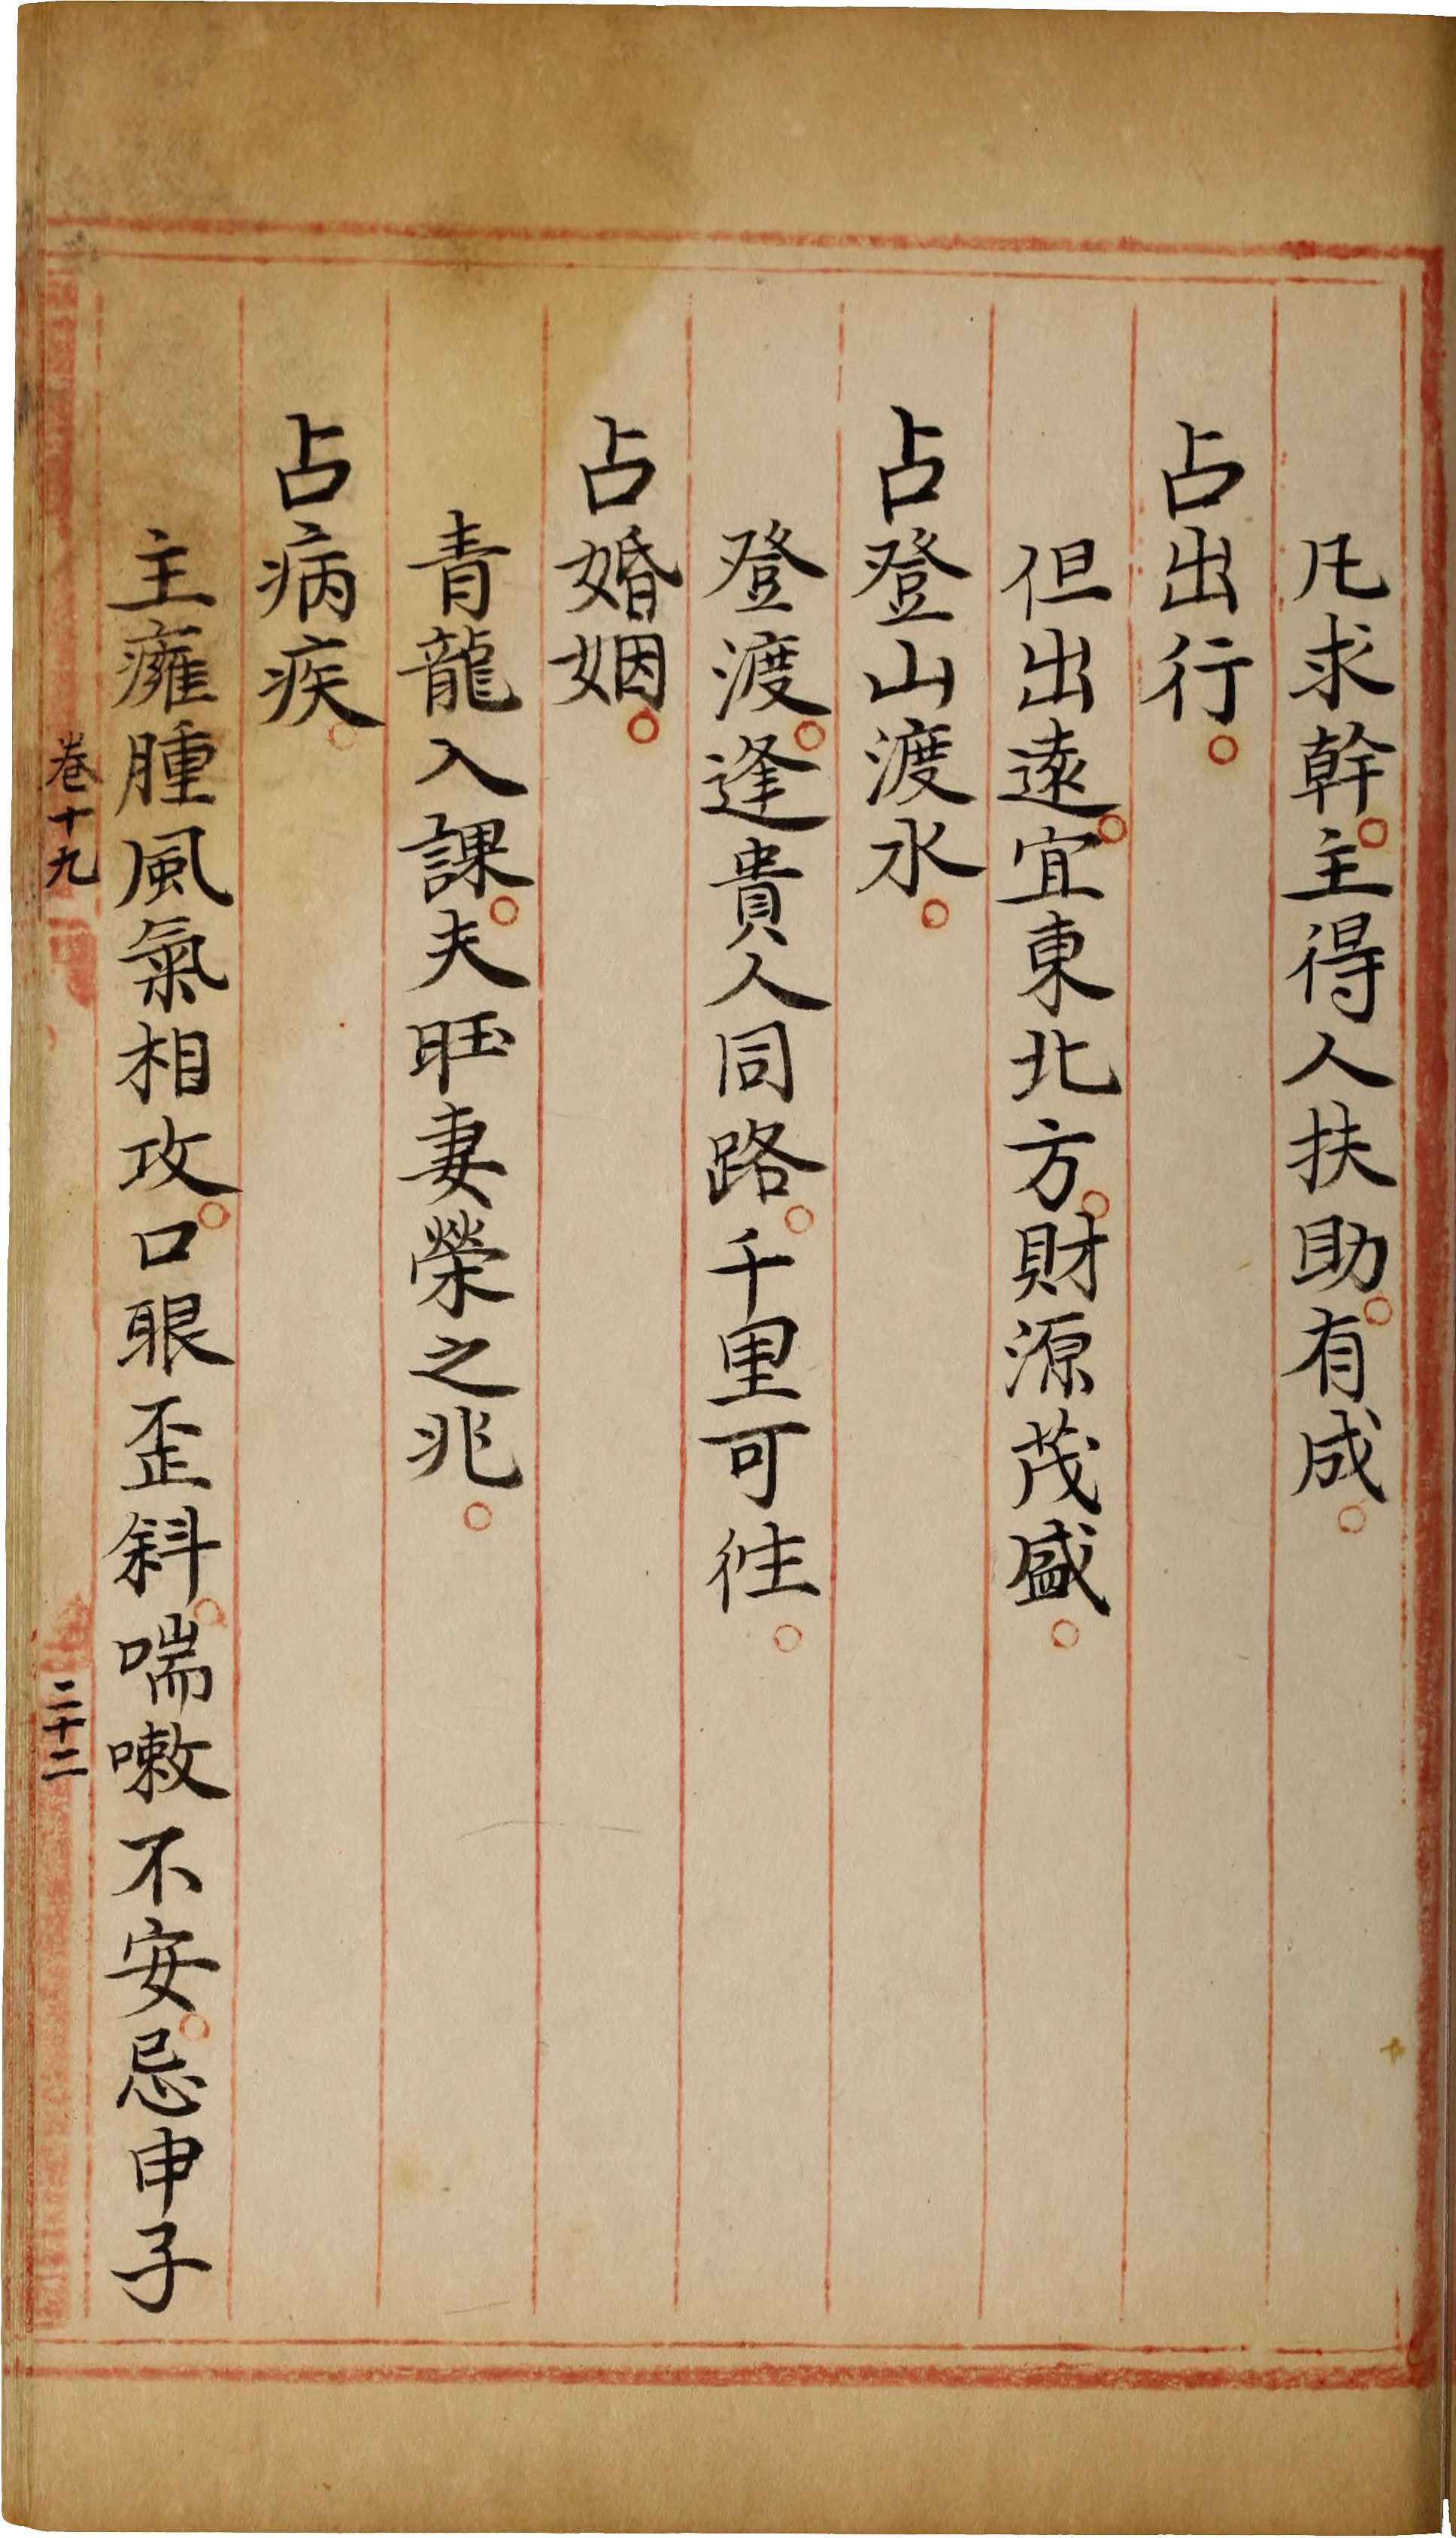 凡求幹。主得人扶助。有成。
占出行。
但出遠。宜東北方。財源茂盛。
占登山渡水。
登渡。逢貴人同路。千里可徃。
占婚姻。
青龍入課。夫旺妻榮之兆。
占病疾。
主癕腫風氣相攻。口眼歪斜。喘嗽不安。忌申子
卷十九
二十二